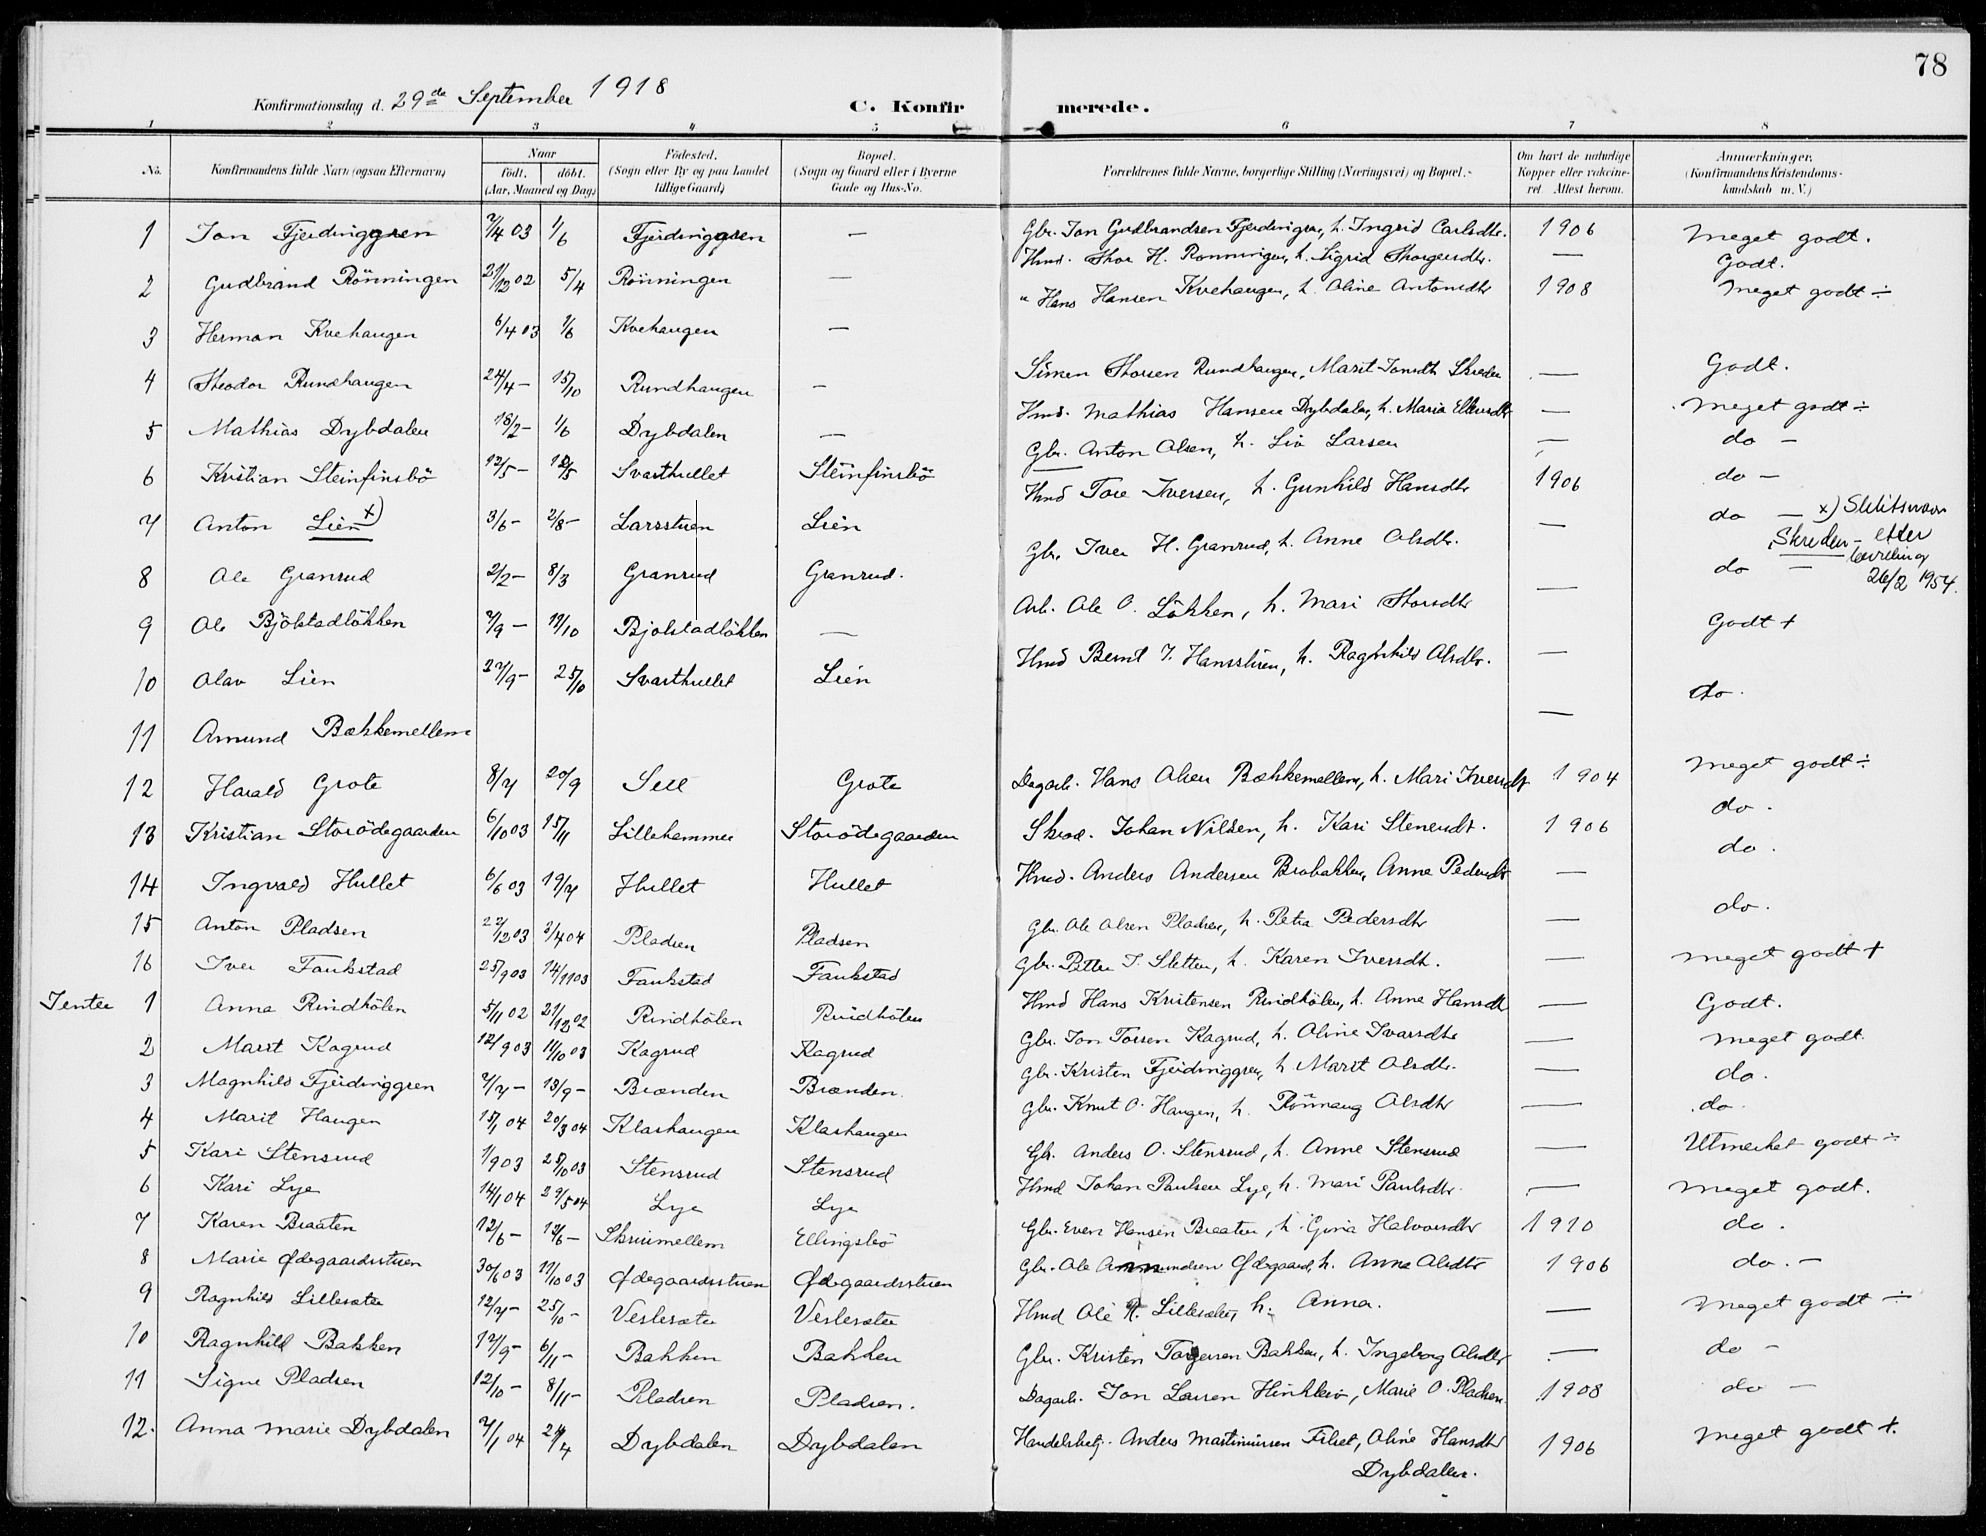 78
Konfirmationsdag d. 29de September 1918
C. Konfirmerede.
1 2 3 4 5 6 7 8
No. Konfirmandens fulde Navn (ogsaa Efternavn) Naar født. døbt. (Aar, Maaned og Dag) Fødested. (Sogn eller By og paa Landet tillige Gaard) Bopæl. (Sogn og Gaard eller i Byerne Gade og Hus-No. Forældrenes fulde Navne, borgerlige Stilling (Næringsvei) og Bopæl. Om havt de naturlige Kopper eller vakcineret. Attest herom. Anmærkninger. (Konfirmandens Kristendomskundskab m. V.)
1 Jon Fjerdinggren 7/4 03 1/6 Fjerdinggren — Gbr. Jon Gudbrandsen Fjerdingren, h. Ingrid Carlsdtr. 1906 Meget godt.
2 Gudbrand Rönningen 21/12 02 5/4 Rönningen — Hmd. Thor H. Ronningen, h. Sigrid Thorgersdtr. — Godt.
3 Herman Kvehaugen 6/4 03 1/6 Kvehaugen — " Hans Hansen Kvehaugen, h. Oline Antonsdtr 1908 Meget godt ÷
4 Theodor Rundhaugen 24/4 — 15/10 Rundhaugen — Simen Thorsen Rundhaugen, Marit Jonsdtr Skreden — Godt.
5 Mathias Dybdalen 18/2 — 1/6 Dybdalen — Hmd. Mathias Hansen Dybdalen, h. Maria Ellensdtr — Meget godt ÷
6 Kristian Steinfinsbö 12/5 — Svarthullet Steinfinsbö Gbr. Anton Olsen, h. Liv Larsen — do —
7 Anton Lien x) 3/6 — 2/8 — Larsstuen Lien Hmd Tore Iversen, h. Gunhild Hansdtr 1906 do —
8 Ole Granrud 2/2 — 8/3 Granrud Granrud. Gbr. Iver H. Granrud, h. Anne Olsdtr. — do — x) Slektsnavn Skreden — etter bevilling 26/2 1954.
9 Ole Bjölstadlökken 7/9 — 19/10 Bjolstadlökken — Arb. Ole O. Lökken, h. Mari Thorsdtr — do —
10 Olav Lien 27/9 — 25/10 Svarthullet Lien Hmd Bernt J. Hansstuen, h. Ragnhild Olsdtr. — Godt +
11 Amund Bækkemellem — do.
12 Harald Grote 8/7 20/9 Sell Grote Dagarb. Hans Olsen Bækkemellem, h. Mari Iversdtr 1904 Meget godt ÷
13 Kristian Storödegaarden 6/10 03 15/11 Lillehammer Storödegaarden Skræd. Johan Nilsen, h. Kari Stenersdt. 1906 do.
14 Ingvald Hullet 6/6 03 19/7 Hullet Hullet Hmd. Anders Andersen Brobakken, Anne Pedersdtr — do.
15 Anton Pladsen 22/12 03 3/4 04 Pladsen Pladsen Gbr. Ole Olsen Pladsen, h. Petra Pedersdtr — do.
16 Iver Faukstad 25/9 03 14/11 03 Faukstad Faukstad Gbr. Petter I. Sletten, h. Karen Iversdt. — Meget godt +
Jenter 1 Anna Rindhölen 5/11 02 21/12 02 Rindhölen Rindhölen Hmd Hans Kristensen Rindhölen, h. Anne Hansdtr — Godt.
2 Marit Kagrud 12/9 03 11/10 03 Kagrud Kagrud Gbr. Jon Torsen Kagrud, h. Oline Ivarsdtr — Meget godt.
3 Magnhild Fjerdinggren 7/7 — 13/9 — Brænden Brænden. Gbr. Kristen Fjerdinggren, h. Marit Olsdtr. — do.
4 Marit Haugen 15/1 04 20/3 04 Klashaugen Klashaugen Gbr. Knut O. Haugen, h. Rönnaug Olsdtr — do.
5 Kari Stensrud 1/9 03 25/10 03 Stensrud Stensrud Gbr. Anders O. Stensrud, h. Anne Stensrud — Utmerket godt ÷
6 Kari Lye 14/1 04 29/5 04 Lye Lye Hmd Johan Paulsen Lye, h. Mari Paulsdtr. — Meget godt.
7 Karen Braaten 12/6 — Skruumellem Ellingsbö Gbr. Even Hansen Braaten, h. Gina Halvorsdtr 1910 do.
8 Marie Ødegaardsstuen 30/6 03 17/10 03 Ødegaardsstuen Ødegaardsstuen Gbr. Ole Ammundsen Ødegaard, h. Anna Olsdtr 1906 do. —
9 Ragnhild Lillesæter 12/7 — 25/10 — Veslesæter Veslesæter Hmd Ole Lillesæter, h. Anna. — Meget godt ÷
10 Ragnhild Bakken 17/9 — 6/11 — Bakken Bakken Gbr. Kristen Torgersen Bakken, h. Ingeborg Olsdtr — do —
11 Signe Pladsen 12/10 — 8/11 — Pladsen Pladsen. Dagarb. Jon Larsen Hinkleiv, Marie O. Pladsen 1908 do —
12. Anna Marie Dybdalen 7/1 04 24/4 Dybdalen Dybdalen Handelsbetj. Anders Martinussen Filset, Oline Hansdtr Dybdalen. 1906 Meget godt +.